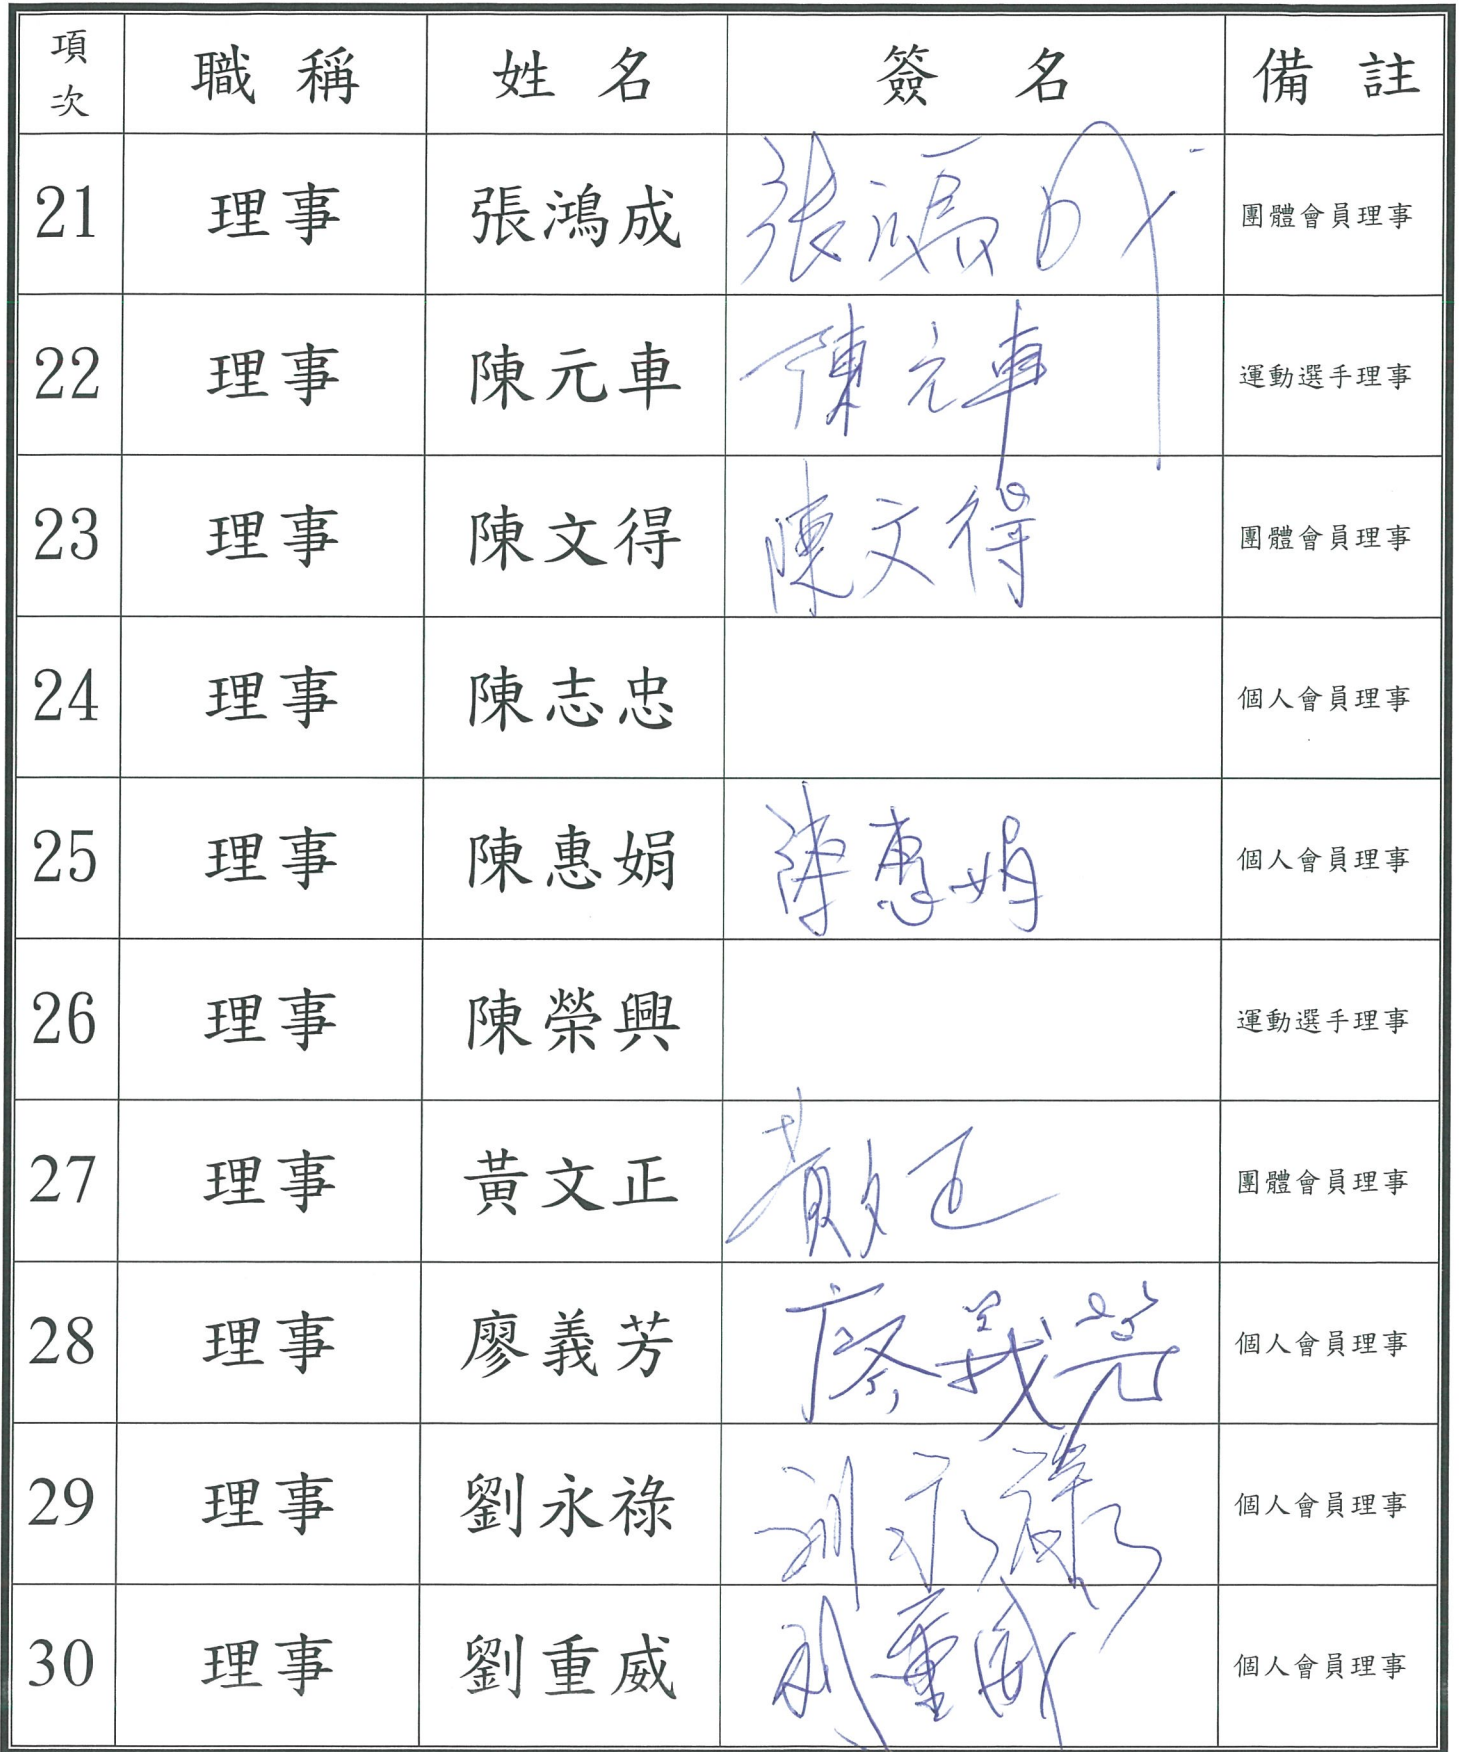 項次 職稱 姓名 簽名 備註
21 理事 張鴻成 張鴻成 團體會員理事
22 理事 陳元車 陳元車 運動選手理事
23 理事 陳文得 陳文得 團體會員理事
24 理事 陳志忠 個人會員理事
25 理事 陳惠娟 陳惠娟 個人會員理事
26 理事 陳榮興 運動選手理事
27 理事 黃文正 黃文正 團體會員理事
28 理事 廖義芳 廖義芳 個人會員理事
29 理事 劉永祿 刘永祿 個人會員理事
30 理事 劉重威 刘重威 個人會員理事